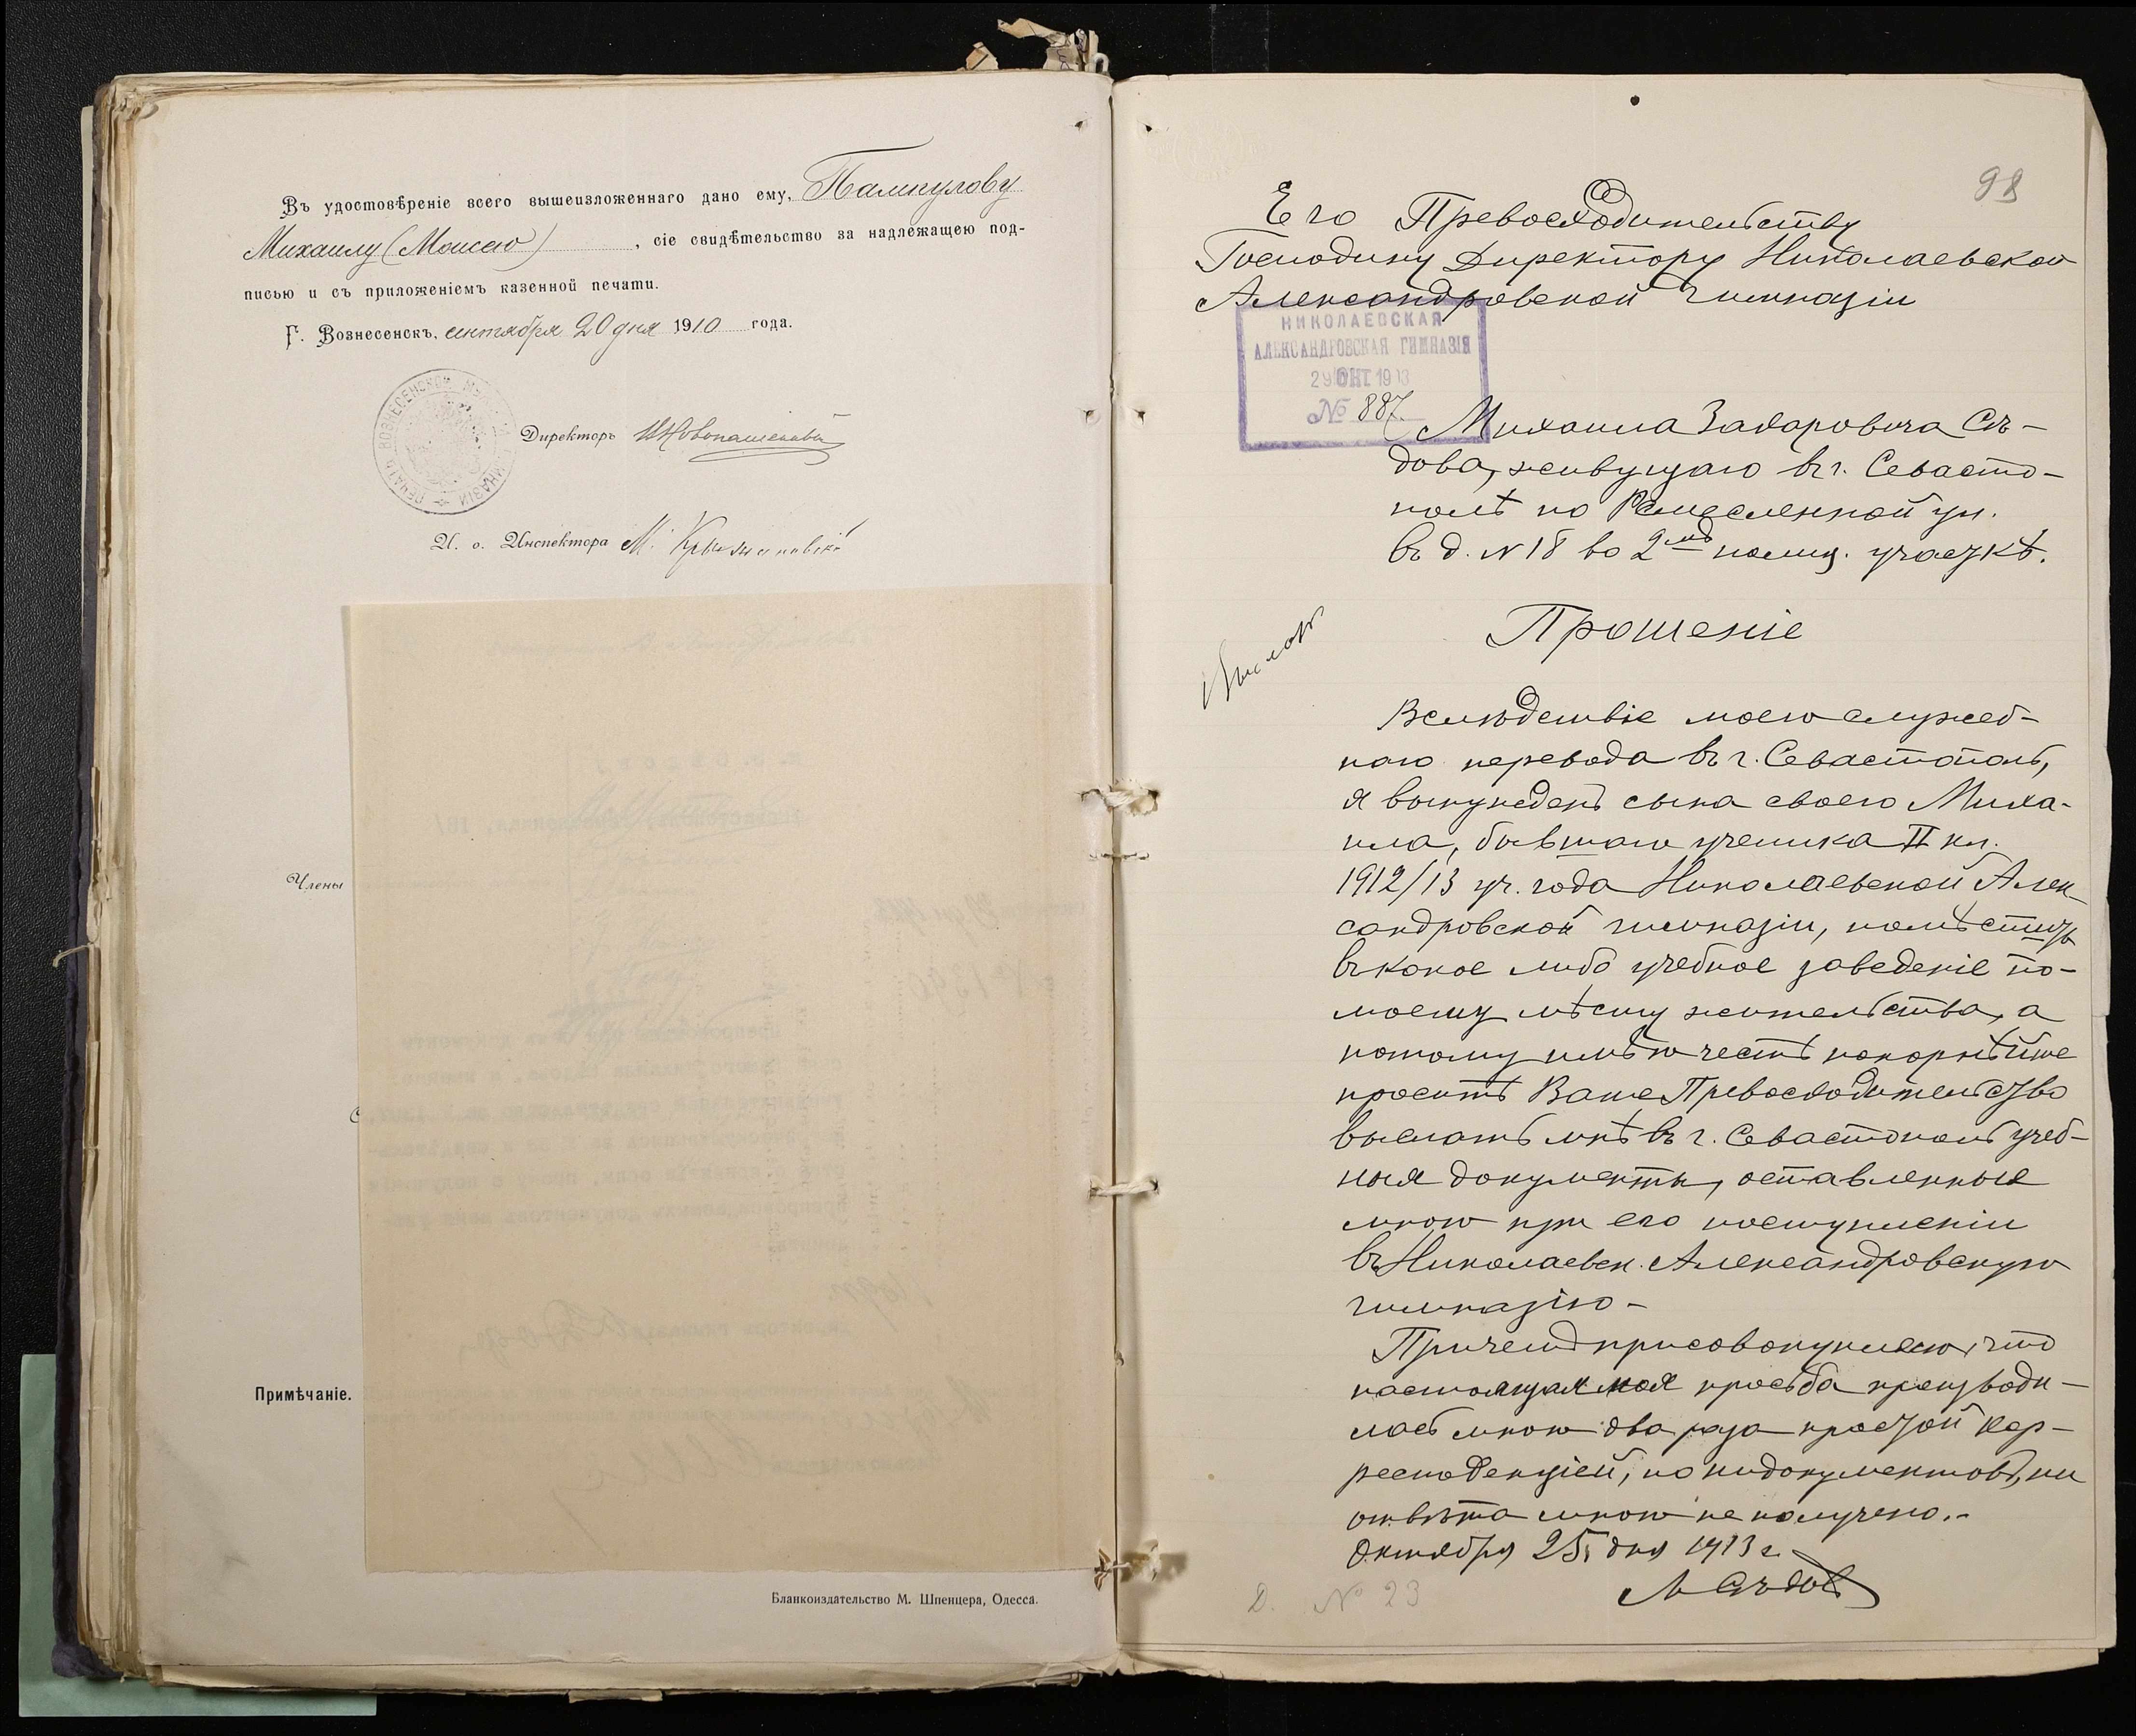 Въ удостовѣреніе всего вышеизложеннаго дано ему,
Михаилу (Моисею), сіе свидѣтельство за надлежащею под-
писью и съ приложеніемъ казенной печати.
Г. Вознесенскъ, сентября 20 дня 1910 года.
Директоръ
И. о. Инспектора М.
Члены
Примѣчаніе.
Бланкоиздательство М. Шпенцера, Одесса.
98
Его Превосходительству
Господину Директору Николаевской
Александровской гимназіи
НИКОЛАЕВСКАЯ
АЛЕКСАНДРОВСКАЯ ГИМНАЗІЯ
29 ОКТ 1913
№ 887
Михаила Захаровича Сѣ-
дова, живущаго въ г. Севасто-
полѣ по Ремесленной ул.
въ д. N 18 во 2мъ полиц. участкѣ.
Прошеніе
Вслѣдствіе моего служеб-
наго перевода въ г. Севастополь,
я вынужденъ сына своего Миха-
ила, бывшаго ученика II кл.
1912/13 уч. года Николаевской Алек-
сандровской гимназіи, помѣстить
въ какое либо учебное заведеніе по-
моему мѣсту жительства, а
потому имѣю честь покорнѣйше
просить Ваше Превосходительство
выслать мнѣ въ г. Севастополь учеб-
ныя документы, оставленные
мною при его поступленіи
въ Николаевск. Александровскую
гимназію -
Причемъ присовокупляю, что
настоящая моя просьба производи-
лась мною два раза простой кор-
респоденціей, но ни документовъ, ни
отвѣта мною не получено.-
Октября 25 дня 1913 г.
М Сѣдов
Д. № 23